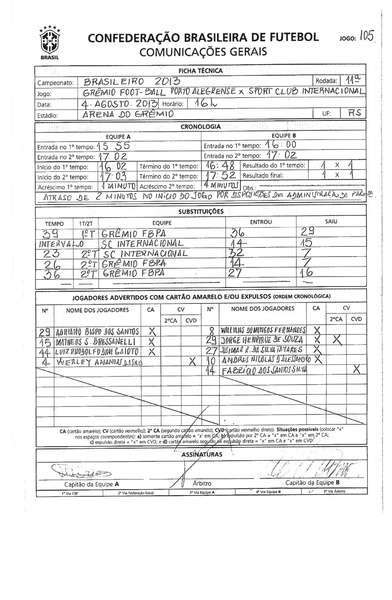 CONFEDERAÇÃO BRASILEIRA DE FUTEBOL JOGO: 105
COMUNICAÇÕES GERAIS
BRASIL
FICHA TÉCNICA
Campeonato: BRASILEIRO 2013 Rodada: 11ª
Jogo: GRÊMIO FOOT-BALL PORTO ALEGRENSE X SPORT CLUB INTERNACIONAL
Data: 4 AGOSTO 2013 Horário: 16h
Estádio: ARENA DO GRÊMIO UF: RS
CRONOLOGIA
EQUIPE A EQUIPE B
Entrada no 1º tempo: 15 55 Entrada no 1º tempo: 16:00
Entrada no 2º tempo: 17 02 Entrada no 2º tempo: 17:02
Início do 1º tempo: 16 02 Término do 1º tempo: 16:48 Resultado do 1º tempo: 1 x 1
Início do 2º tempo: 17:03 Término do 2º tempo: 17:52 Resultado final: 1 x 1
Acréscimo 1º tempo: 1 MINUTO Acréscimo 2º tempo: 4 MINUTOS Obs.:
ATRASO DE 2 MINUTOS NO INÍCIO DO JOGO POR
SUBSTITUIÇÕES
TEMPO 1T/2T EQUIPE ENTROU SAIU
39 1ºT GRÊMIO FBPA 36 29
INTERVALO SC INTERNACIONAL 14 15
23 2ºT SC INTERNACIONAL 32 7
26 2ºT GRÊMIO FBPA 14 7
36 2ºT GRÊMIO FBPA 27 16
JOGADORES ADVERTIDOS COM CARTÃO AMARELO E/OU EXPULSOS (ORDEM CRONOLÓGICA)
Nº NOME DOS JOGADORES CA CV Nº NOME DOS JOGADORES CA CV
2ºCA CVD 2ºCA CVD
29 ADRIANO BISPO DOS SANTOS X 8 WILLIANS DOMINGOS FERNANDES X
15 MATHEUS S. BRESSANELLI X 29 JORGE HENRIQUE DE SOUZA X
44 X 27 DA SILVA TAVARES X
4 WERLEY X 10 ANDRES NICOLAS D'ALESSANDRO X
14 FABRICIO DOS SANTOS SILVA X
CA (cartão amarelo); CV (cartão vermelho); 2º CA (segundo cartão amarelo); CVD (cartão vermelho direto). Situações possíveis (colocar "x"
nos espaços correspondentes): a) somente cartão amarelo = "x" em CA; b) expulsão por 2º CA = "x" em CA e "x" em 2º CA;
c) expulsão direta = "x" em CVD; e d) cartão amarelo seguido de expulsão direta = "x" em CA e "x" em CVD.
ASSINATURAS
Capitão da Equipe A Árbitro Capitão da Equipe B
1ª Via CBF 2ª Via Federação local 3ª Via Equipe A 4ª Via Equipe B 5ª Via Árbitro